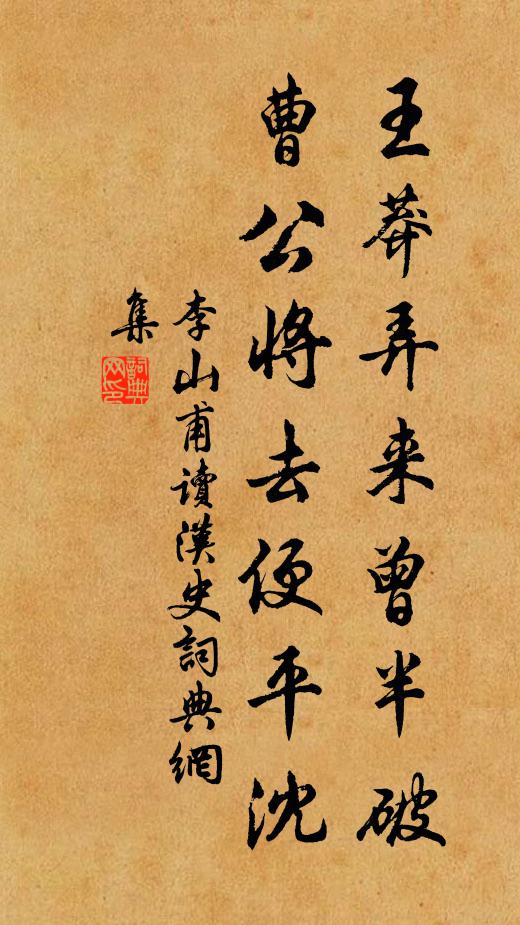 王莽弄来曾半破
曹公将去便平沈
李山甫读漢史詞典網
集
詞典
网印